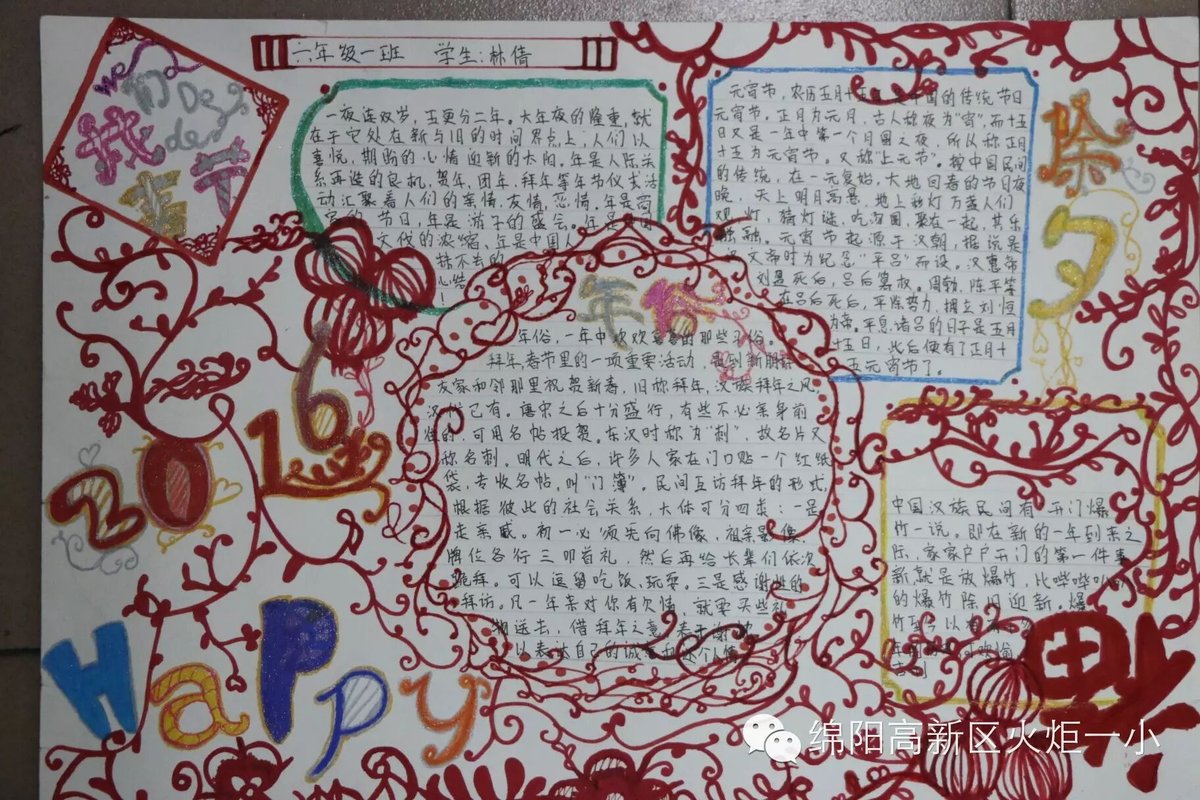 六年级一班 学生:林倩
we
我们De
de
节
一夜连双岁,五更分二年。大年夜的隆重,就
在于它处在新与旧的时间界点上,人们以
喜悦,期盼的心情迎新的太阳。年是人际关
系再造的良机,贺年,团年,拜年等年节仪式活
动汇聚着人们的亲情,友情,恋情。年是
的节日,年是游子的盛会。年是
文化的浓缩、年是中国人
抹不去的
心结
!
元宵节,农历五月十五日,是中国的传统节日
元宵节,正月为元月,古人称夜为"宵",而十五
日又是一年中第一个月圆之夜,所以称正月
十五为元宵节。又称"上元节"。按中国民间
的传统,在一元复始,大地回春的节日夜
晚,天上明月高悬,地上彩灯万盏人们
观灯,猜灯谜,吃汤圆,聚在一起,其乐
融融。元宵节起源于汉朝,据说是
汉文帝时为纪念"平吕"而设。汉惠帝
刘盈死后,吕后篡权。周勃,陈平等
在吕后死后,平除势力,拥立刘恒
为帝。平息诸吕的日子是五月
十五日,此后便有了正月十
五元宵节了。
除
夕
年俗
年俗,一年中欢欢喜喜的那些习俗。
拜年,春节里的一项重要活动,是到新朋
友家和邻那里祝贺新春,旧称拜年,汉族拜年之风
汉代已有。唐宋之后十分盛行,有些不必亲身前
往的,可用名帖投贺。东汉时称为"刺",故名片又
称名刺。明代之后,许多人家在门口贴一个红纸
袋,专收名帖,叫"门簿"。民间互访拜年的形式,
根据彼此的社会关系,大体可分四类:一是
走亲戚。初一必须先向佛像、祖宗影像、
牌位各行三叩首礼,然后再给长辈们依次
跪拜。可以逗留吃饭、玩耍。三是感谢性的
拜访。凡一年来对你有欠情,就要买些礼
物送去,借拜年之意,表示谢
以表达自己的诚
中国汉族民间有"开门爆
竹"一说。即在新的一年到来之
际,家家户户开门的第一件事
新就是放爆竹,比哔哔叭叭
的爆竹除旧迎新。爆
竹
欢愉
吉利
2016
HaPPy
福
绵阳高新区火炬一小